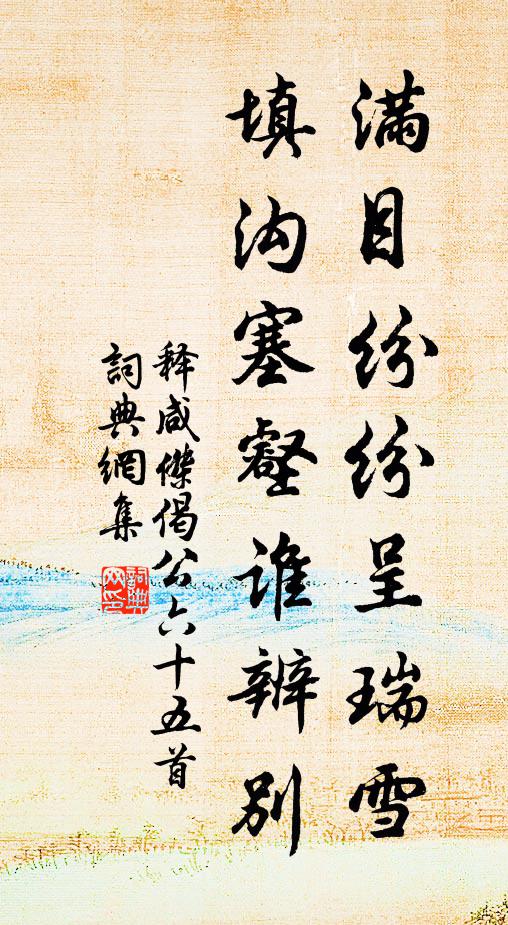 满目纷纷呈瑞雪
填沟塞壑谁辨别
释咸傑偈公六十五首
詞典網集
詞典